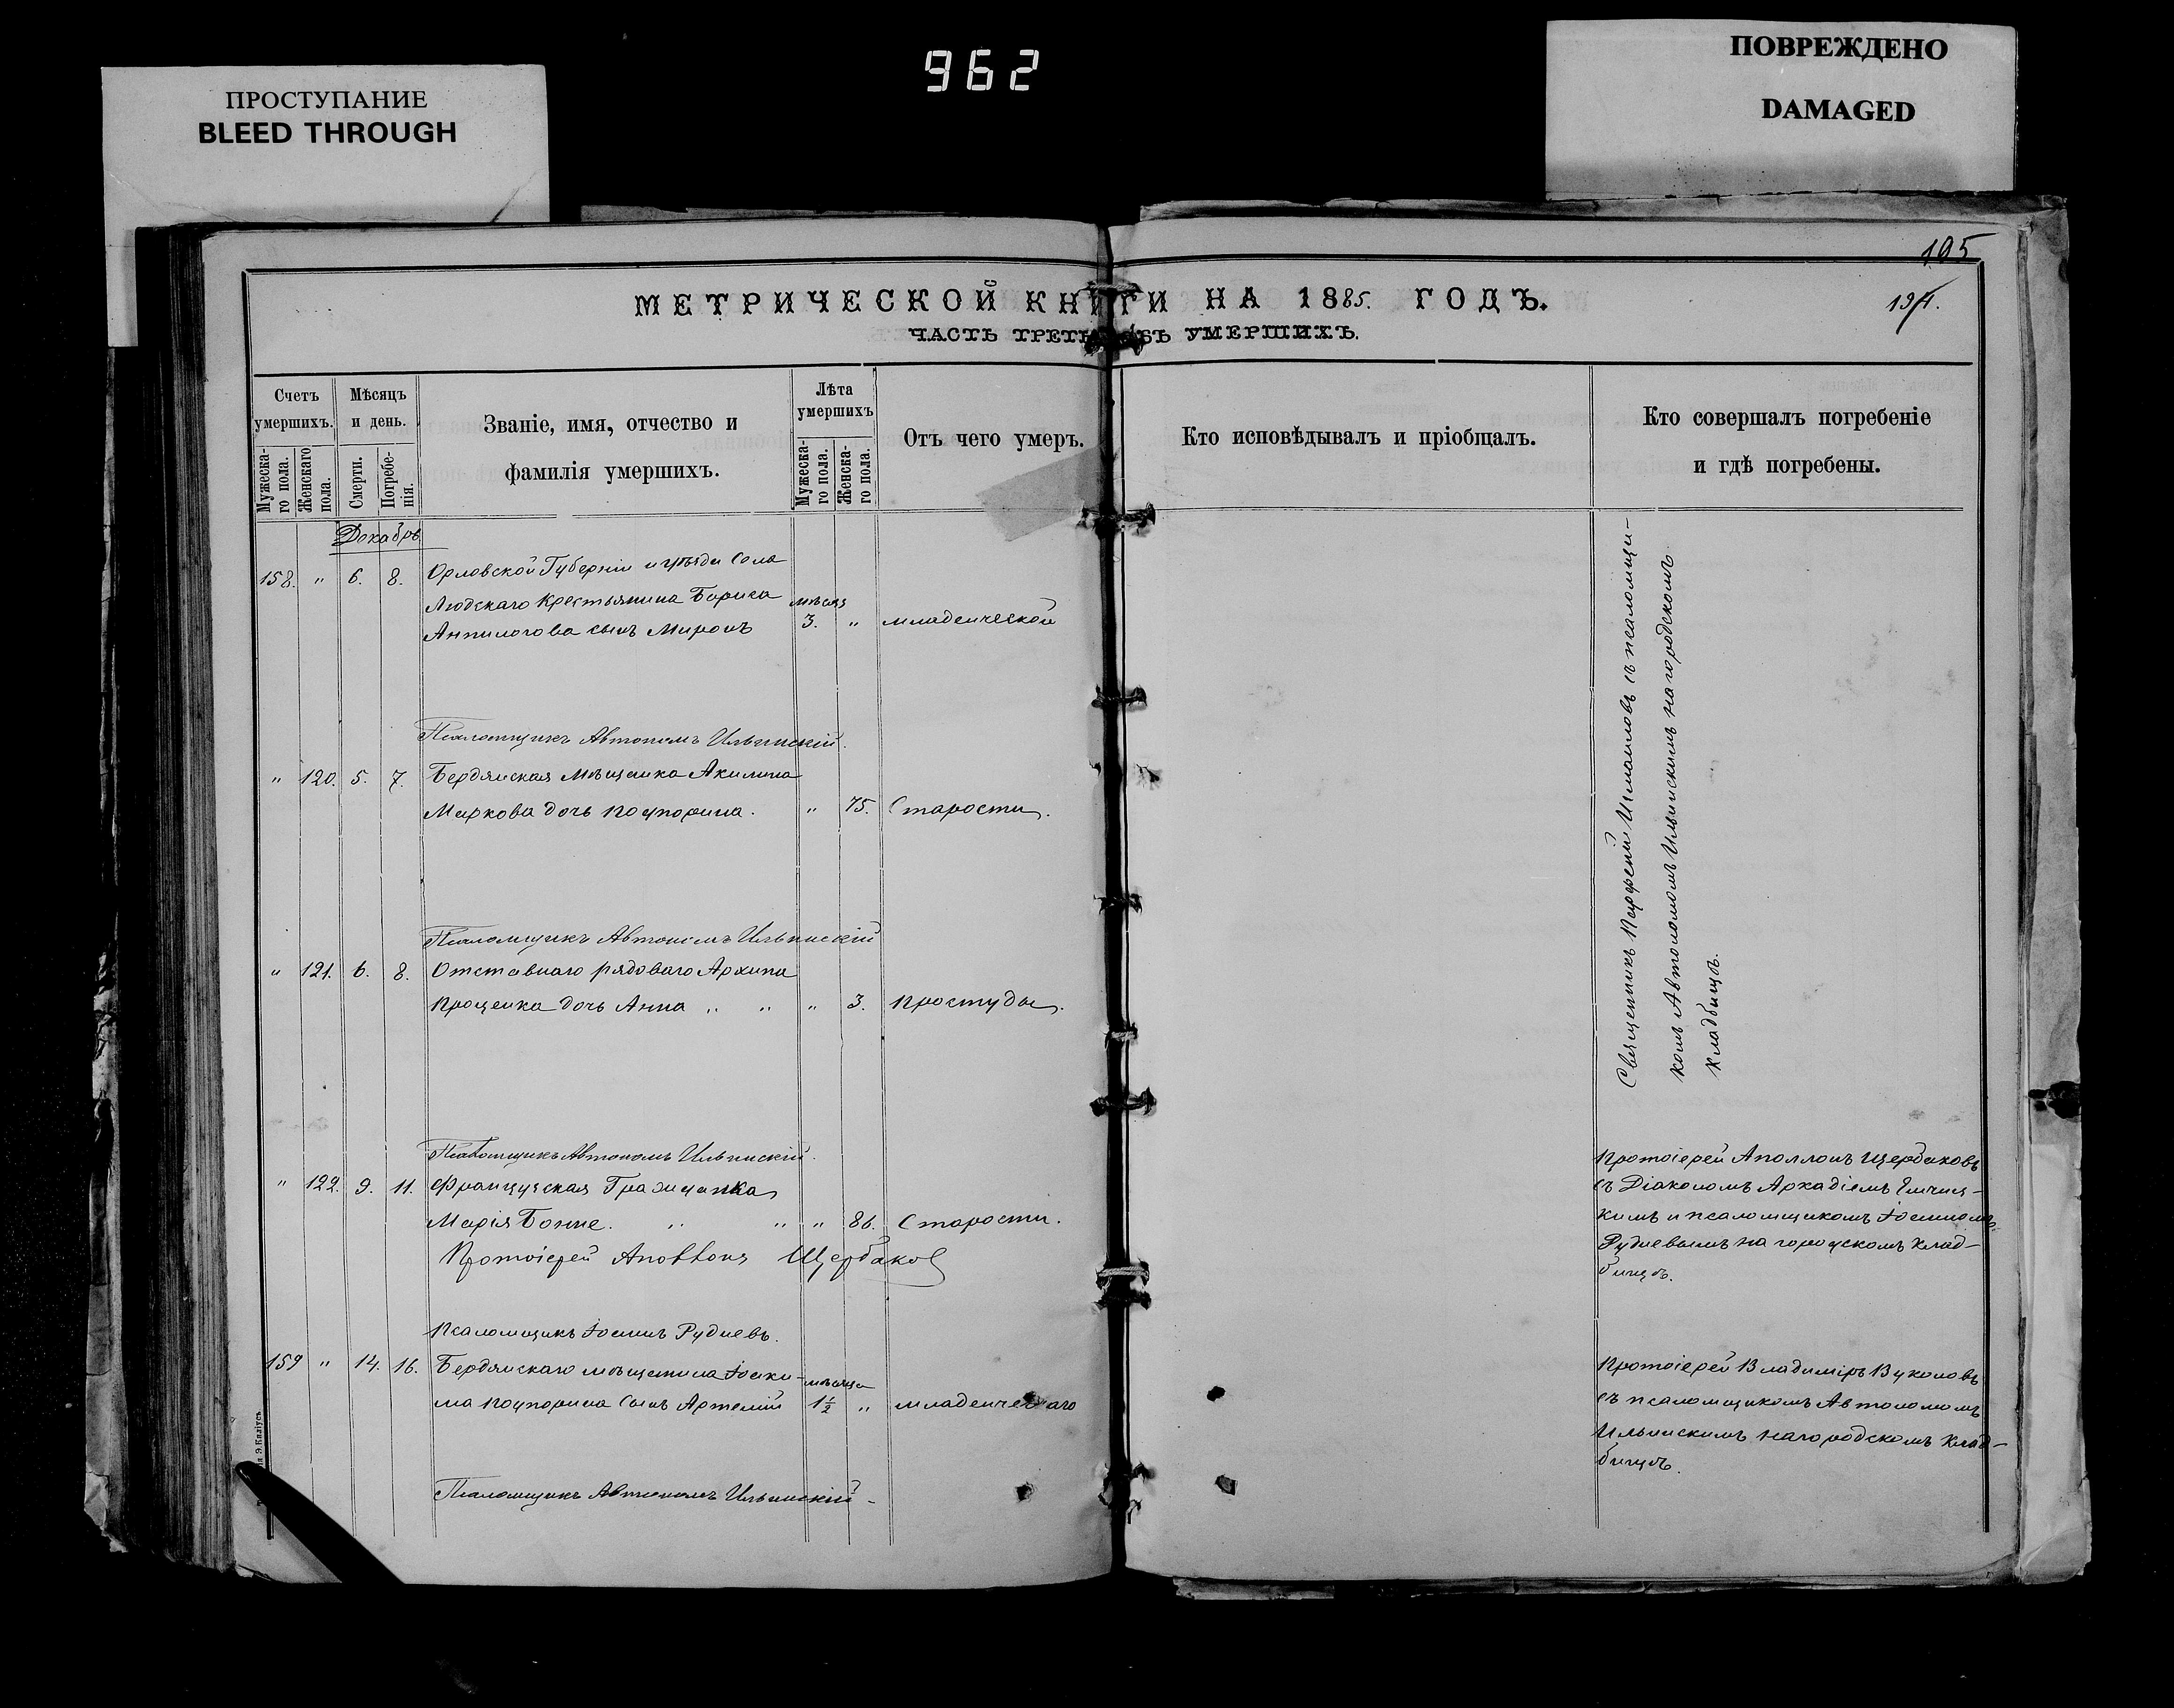 ПРОСТУПАНИЕ
BLEED THROUGH
962
ПОВРЕЖДЕНО
DAMAGED
195
МЕТРИЧЕСКОЙ КНИГИ НА 1885. ГОДЪ.
ЧАСТЬ ТРЕТЬ ОБЪ УМЕРШИХЪ.
Счетъ умершихъ.
Мужеска-
го пола.
Женскаго
пола.
Мѣсяцъ
и день.
Смерти.
Погребе-
нія.
Званіе, имя, отчество и
фамилія умершихъ.
Лѣта
умершихъ
Мужеска-
го пола.
Женска-
го пола.
Отъ чего умеръ.
Кто исповѣдывалъ и пріобщалъ.
Кто совершалъ погребеніе
и гдѣ погребены.
Декабрь
158. " 6. 8. Орловской Губерніи и уѣзда Села
Людскаго Крестьянина Бориса мѣсяц
Анпилогова сынъ Миронъ 3. " младенческой
Псаломщикъ Автономъ Ильинскій.
" 120. 5. 7. Бердянская мѣщанка Акилина
Маркова дочь Коупорина. " 75. Старости.
Псаломщикъ Автономъ Ильинскій
" 121. 6. 8. Отставнаго рядоваго Архипа
Проценка дочь Анна " " " 3. простуды.
Псаломщикъ Автономъ Ильинскій.
" 122. 9. 11. Французская Гражданка
Марія Бонне. " " " 86. Старости.
Протоіерей Аполлонъ Щербаков
Псаломщикъ Іоаннъ Рудневъ.
159 " 14. 16. Бердянскаго мѣщанина Іоаки- мѣсяца
ма Коупорина сынъ Артемій 1½ " младенческаго
Псаломщикъ Автономъ Ильинскій
Священникъ съ псаломщи-
комъ Автономомъ Ильинскимъ на городскомъ
кладбищѣ.
Протоіерей Аполлонъ Щербаковъ
съ Діакономъ Аркадіемъ
кимъ и псаломщикомъ Іоанномъ
Рудневымъ на городскомъ клад-
бищѣ.
Протоіерей Владиміръ Вуколовъ
съ псаломщикомъ Автономомъ
Ильинскимъ на городскомъ клад-
бищѣ.